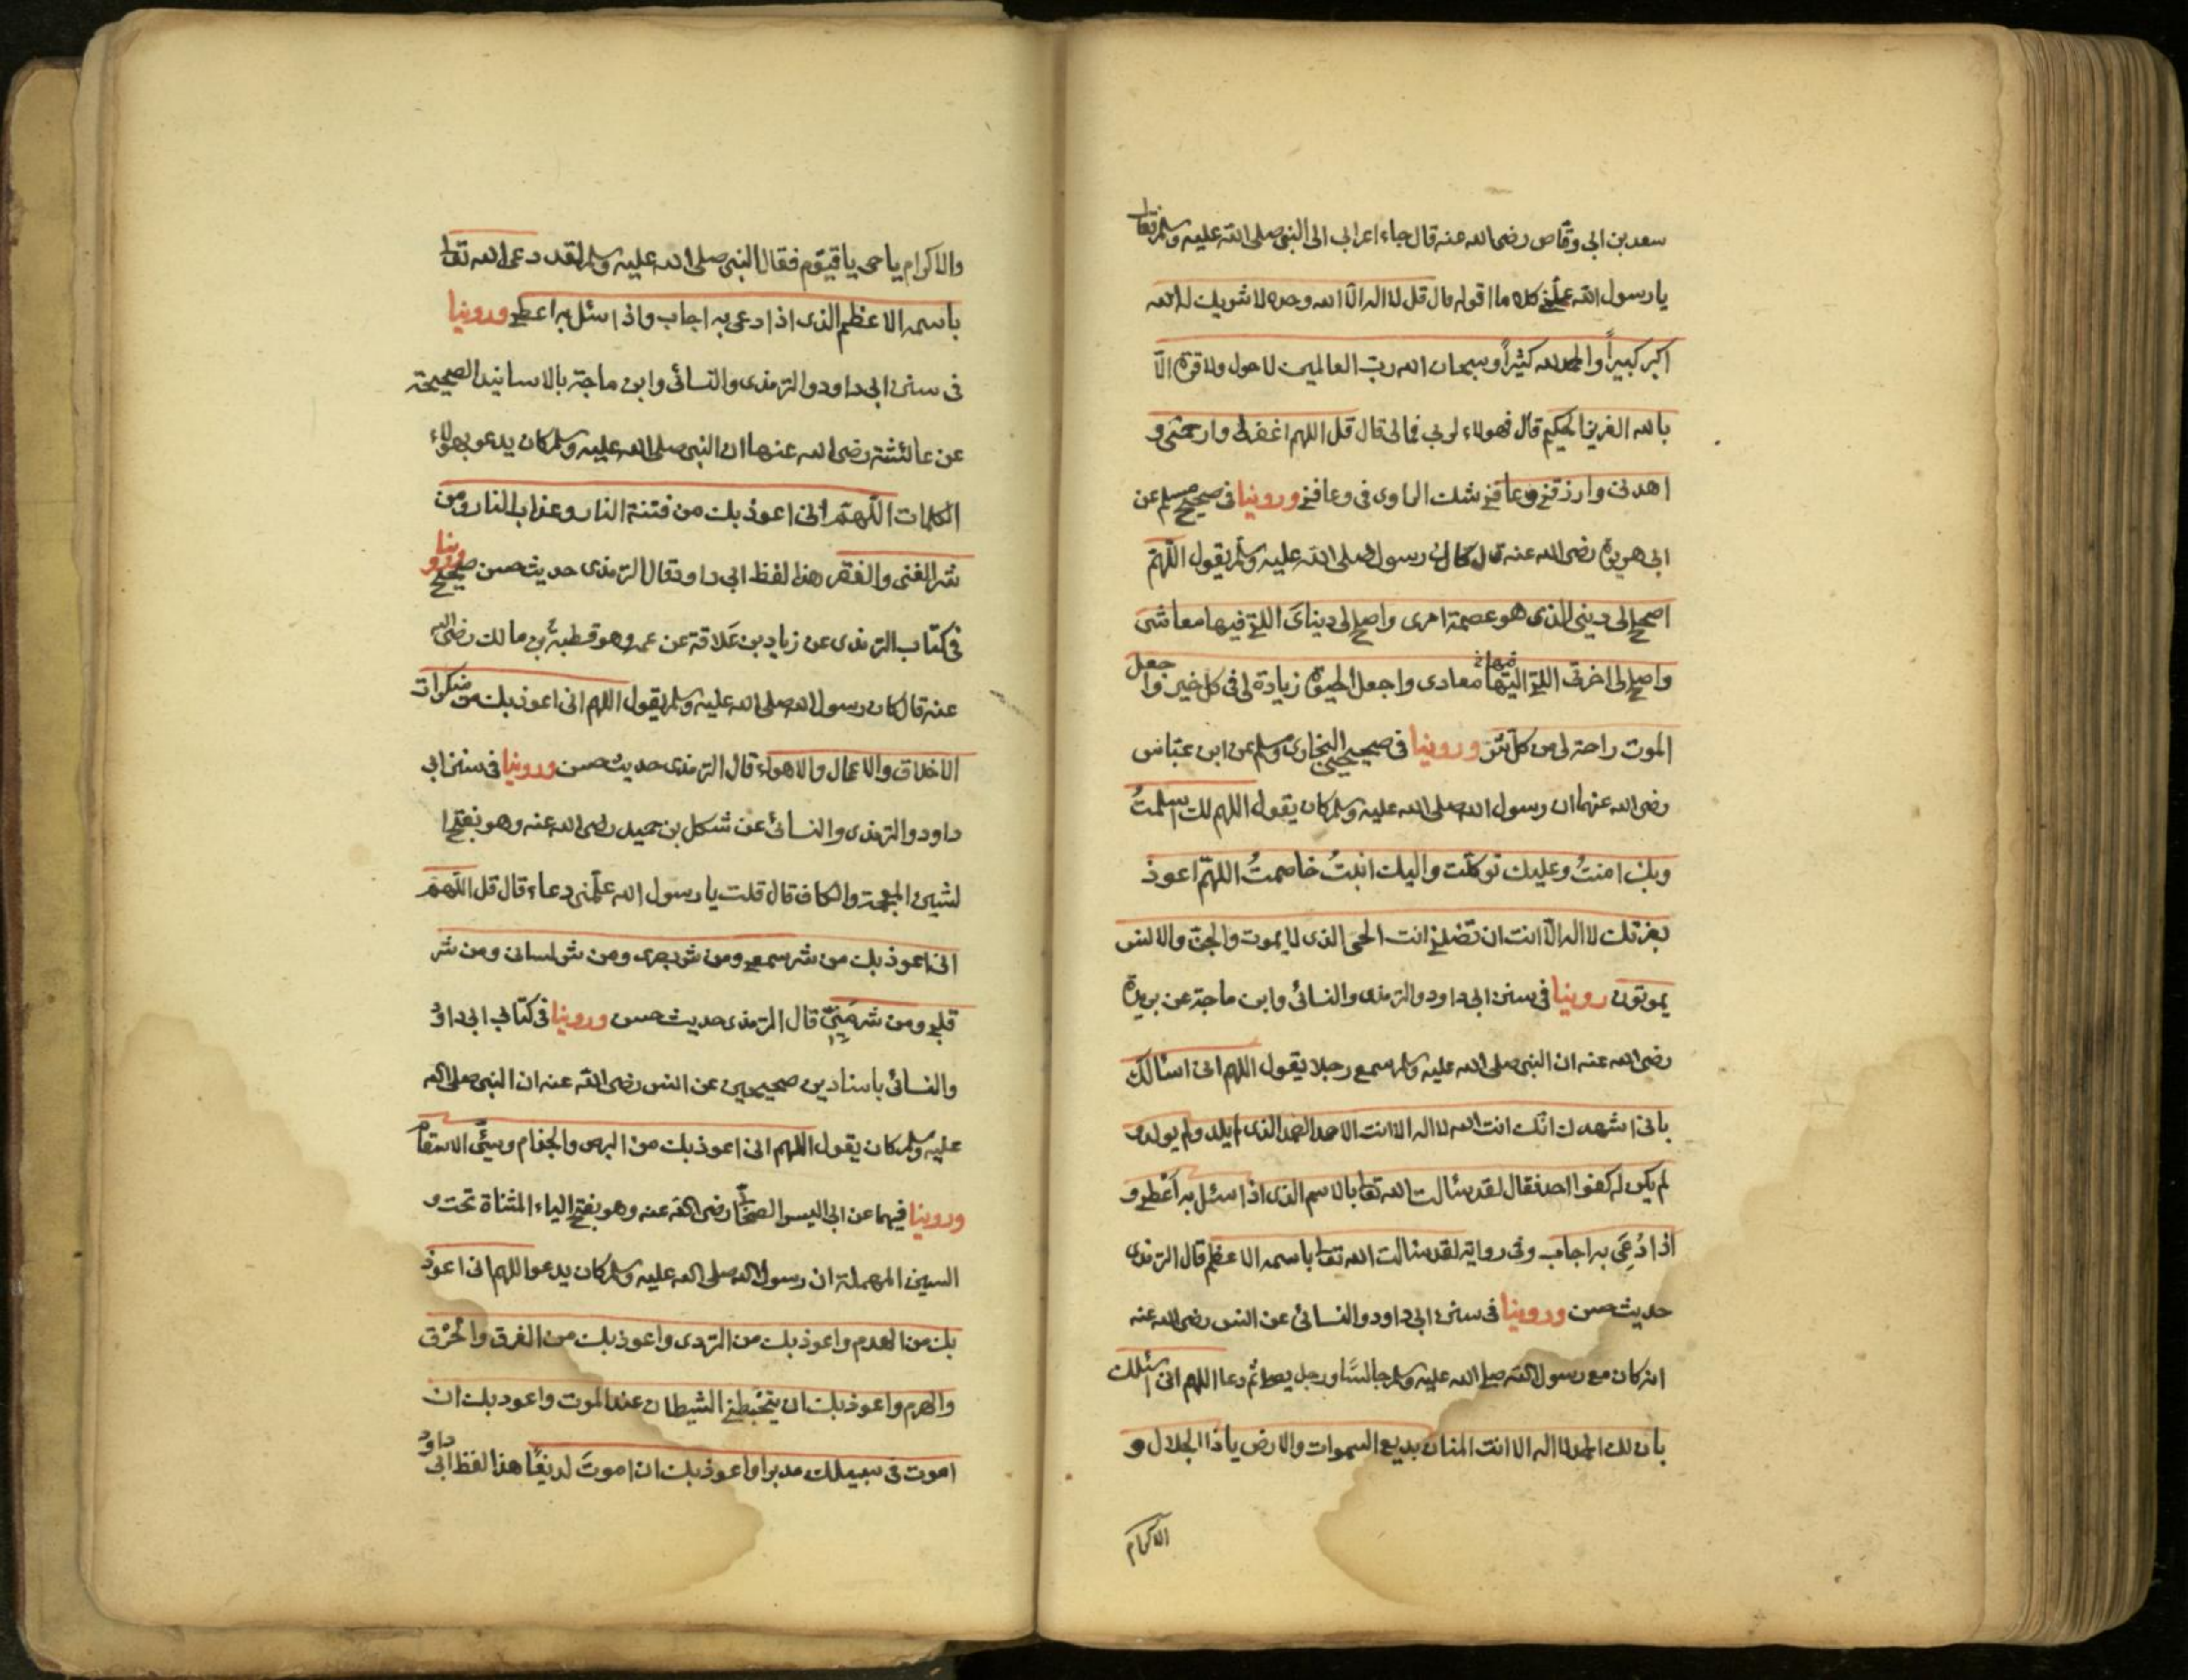 سعد بن ابى وقاص رضى الله عنه قال جاء اعرابى الى النبى صلى الله عليه وسلم فقال
يا رسول الله علمنى كلاما اقوله قال قل لا اله الا الله وحده لا شريك له الله
اكبر كبيراً والحمد لله كثيراً وسبحان الله رب العالمين لا حول ولا قوة الا
بالله العزيز الحكيم قال فهولاء لربى فمالى قال قل اللهم اغفرلى وارحمنى و
اهدنى وارزقنى وعافنى شك الراوى فى وعافنى وروينا فى صحيح مسلم عن
ابى هريرة رضى الله عنه قال كان رسول الله صلى الله عليه وسلم يقول اللهم
اصلح لى دينى الذى هو عصمة امرى واصلح لى دنياى اللتى فيها معاشى
واصلح لى اخرتى اللتى اليها معادى واجعل الحيوة زيادة لى فى كل خير واجعل
الموت راحة لى من كل شر وروينا فى صحيحى البخارى ومسلم عن ابن عباس
رضى الله عنهما ان رسول الله صلى الله عليه وسلم كان يقول اللهم لك اسلمتُ
وبك امنتُ وعليك توكلت واليك انبتُ خاصمتُ اللهم اعوذ
بعزتك لا اله الا انت ان تضلنى انت الحى الذى لا يموت والجن والانس
يموتون روينا فى سنن ابى داود والترمذى والنسائى وابن ماجة عن بريدة
رضى الله عنه ان النبى صلى الله عليه وسلم سمع رجلا يقول اللهم انى اسالك
بانى اشهد ك انك انت الله لا اله الا انت الاحد الصمد الذى لم يلد ولم يولد و
لم يكن له كفوا احد فقال لقد سالت الله تعالى بالاسم الذى اذا سئل به اَعْطى و
اذا دُعِىَ به اجاب وفى رواية لقد سالت الله تعالى باسمه الاعظم قال الترمذى
حديث حسن وروينا فى سنن ابى داود والنسائى عن انس رضى الله عنه
انه كان مع رسول الله صلى الله عليه وسلم جالسًا ورجل يصلى ثم دعا اللهم انى اسئلك
بان لك الحمد لا اله الا انت المنان بديع السموات والارض يا ذا الجلال و
الاكرام
والاكرام يا حى يا قيوم فقال النبى صلى الله عليه وسلم لقد دعى الله تعالى
باسمه الاعظم الذى اذا دعى به اجاب واذا سئل به اعطى وروينا
فى سنن ابى داود والترمذى والنسائى وابن ماجة بالاسانيد الصحيحة
عن عائشة رضى الله عنها ان النبى صلى الله عليه وسلم كان يدعو بهولاء
الكلمات اللهم انى اعوذ بك من فتنة النار وعذاب النار ومن
شر الغنى والفقر هذا لفظ ابى داود وقال الترمذى حديث حسن صحيح وروينا
فى كتاب الترمذى عن زياد بن عَلاقة عن عمه وهو قطبة بن مالك رضى الله
عنه قال كان رسول الله صلى الله عليه وسلم يقول اللهم انى اعوذ بك من منكرات
الاخلاق والاعمال والاهواء قال الترمذى حديث حسن وروينا فى سنن ابى
داود والترمذى والنسائى عن شكل بن حميد رضى الله عنه وهو بفتح ا
لشين المعجمة والكاف قال قلت يا رسول الله علّمنى دعاء قال قل اللهم
انى اعوذ بك من شر سمعى ومن شر بصرى ومن شر لسانى ومن شر
قلبى ومن شر مَنيّى قال الترمذى حديث حسن وروينا فى كتابى ابى داود
والنسائى باسنادين صحيحين عن انس رضى الله عنه ان النبى صلى الله
عليه وسلم كان يقول اللهم انى اعوذ بك من البرص والجذام وسيّئ الاسقام
وروينا فيهما عن ابى اليسر الصحابى رضى الله عنه وهو بفتح الياء المثناة تحت و
السين المهملة ان رسول الله صلى الله عليه وسلم كان يدعو اللهم انى اعوذ
بك من الهدم واعوذ بك من التردى واعوذ بك من الغرق والْحرْق
والهرم واعوذ بك ان يتخبطنى الشيطان عند الموت واعوذ بك ان
اموت فى سبيلك مدبرا واعوذ بك ان اموتَ لديغًا هذا لفظ ابى داود